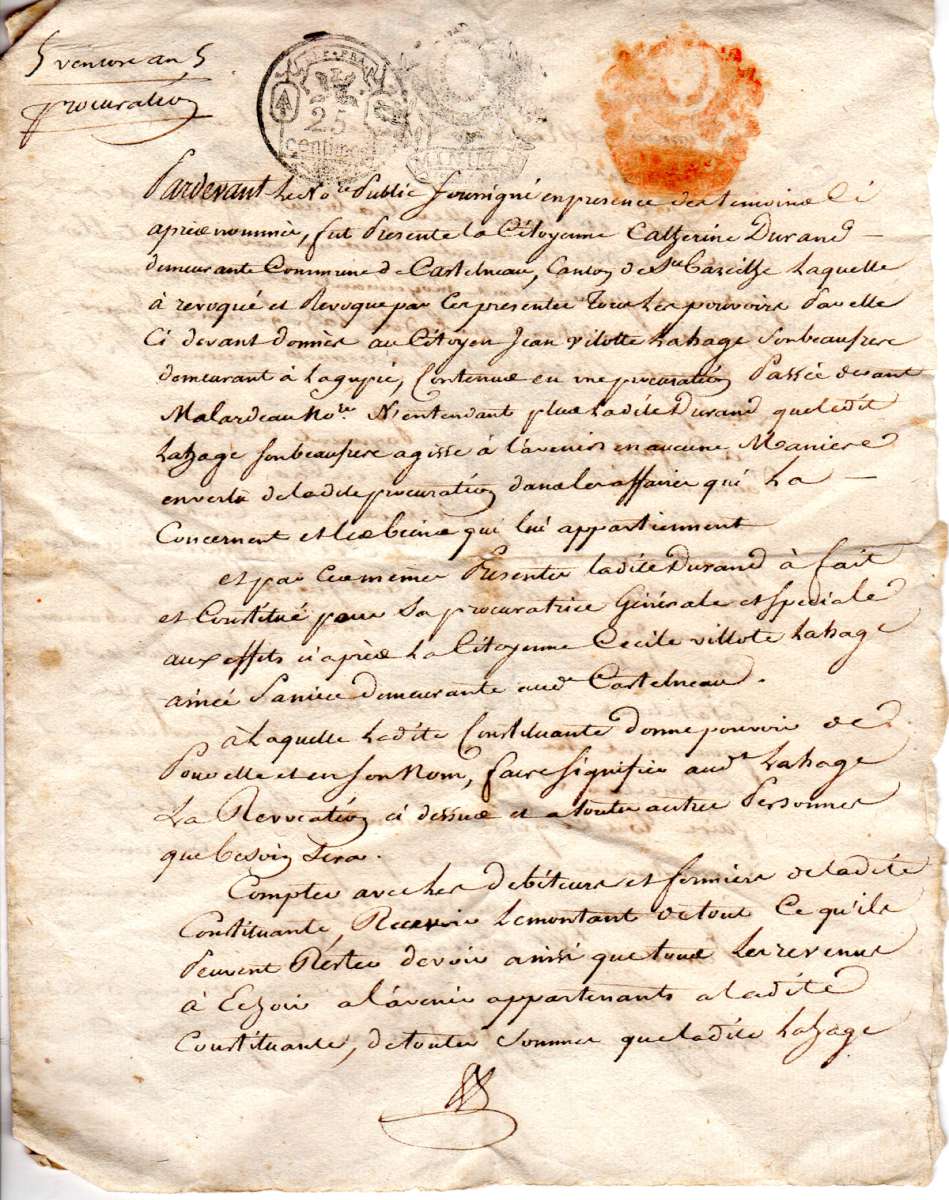 5 ventose an 5
procuration
REP. FRA
25
centimes
MINUTE
Pardevant Le No.re Public soussigné en presence des temoins Ci
après nommés, fut Presente la Citoyenne Catherine Durand
demeurante Commune de Castelneau, Canton de Ste Bazeille Laquelle
à revoqué et Revoque par Ces presentes Tous Les pouvoirs Par elle
Ci devant donnés au Citoyen Jean vilotte Lahage son beaufrere
demeurant à Lagupié, Contenus en une procuration Passée devant
Malardeau No.re N'entendant plus Ladite Durand que Ledit
Lahage son beaufrere agisse à L'avenir en aucune Maniere
en vertu de Ladite procuration dans les affaires qui La
Concernent et les biens qui lui appartiennent
et par Ces mêmes Presentes ladite Durand à fait
et Constitué pour Sa procuratrice Générale et spéciale
aux effets ci après La Citoyenne Cecile villote Lahage
ainée Sa niece demeurante aud.t Castelneau.
à Laquelle Ladite Constituante donne pouvoir de
Pour elle et en son Nom, faire signifier aud.t Lahage
La Revocation ci dessus et a toutes autres Personnes
que besoin Sera.
Compter avec Les debiteurs et fermiers de ladite
Constituante, Recevoir Le montant de tout Ce qu'ils
Peuvent Rester devoir ainsi que tous Les revenus
à Echoir a l'avenir appartenants a ladite
Constituante, de toutes Sommes que ladite Lahage